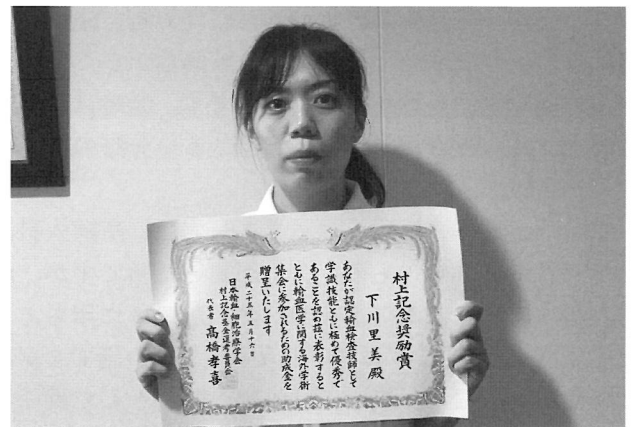 村上記念奨励賞
下川里美殿
あなたが認定輸血検査技師として
学識技能ともに極めて優秀で
あることを認め茲に表彰すると
ともに輸血医学に関する海外学術
集会に参加されるための助成金を
贈呈いたします
平成二十五年五月十六日
日本輸血・細胞治療学会
村上記念基金選考委員会
代表者 高橋孝喜